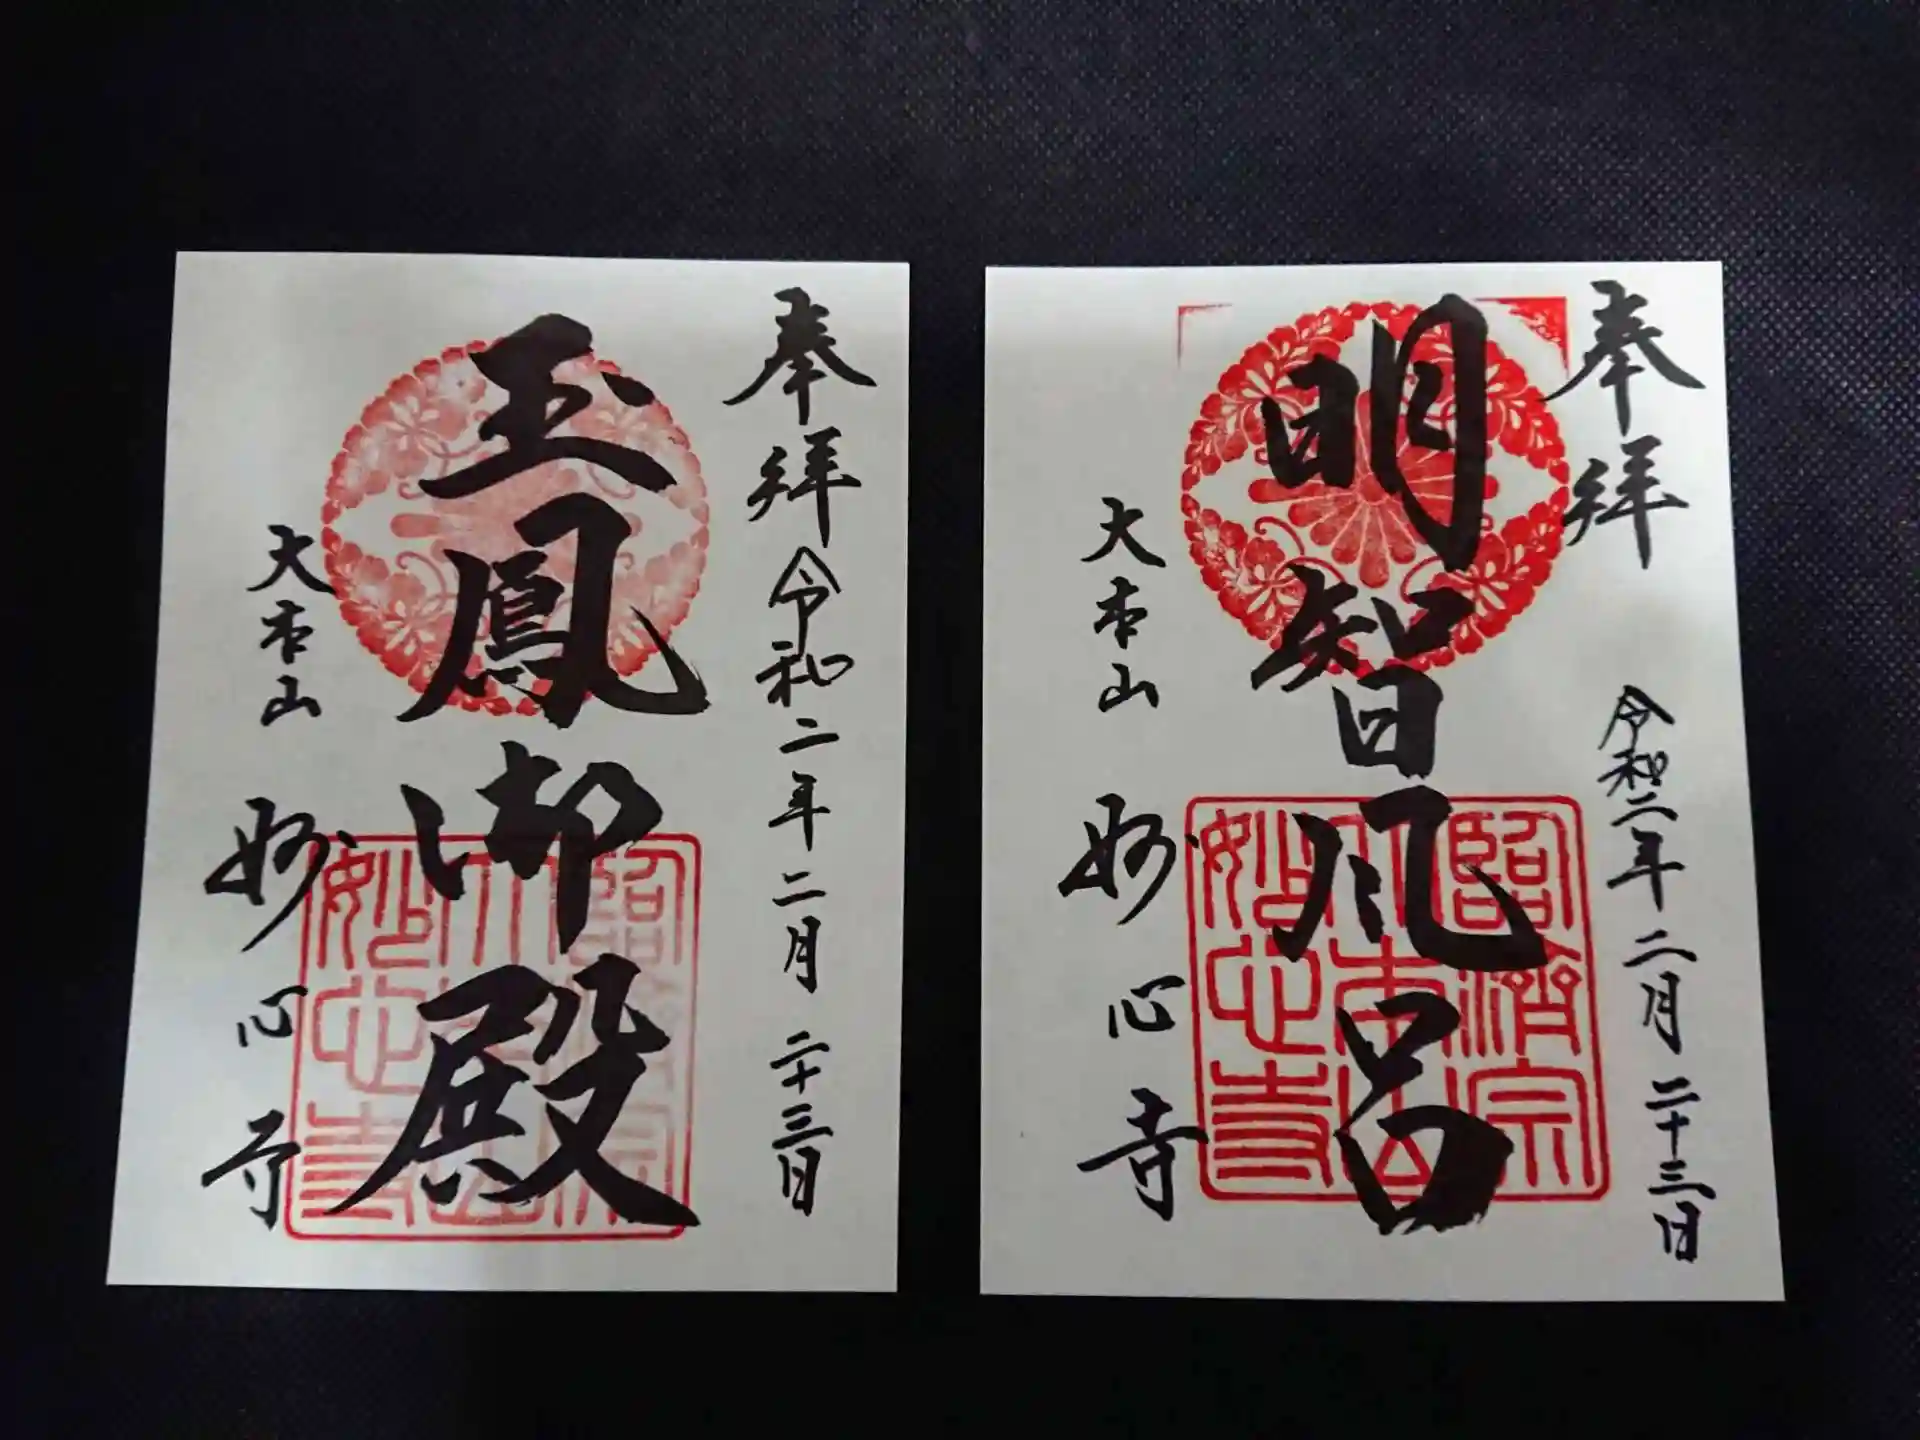 奉拝
令和二年二月二十三日
明智風呂
臨済宗
大本山
妙心寺
大本山 妙心寺
奉拝 令和二年二月二十三日
玉鳳御殿
臨済宗
大本山
妙心寺
大本山 妙心寺